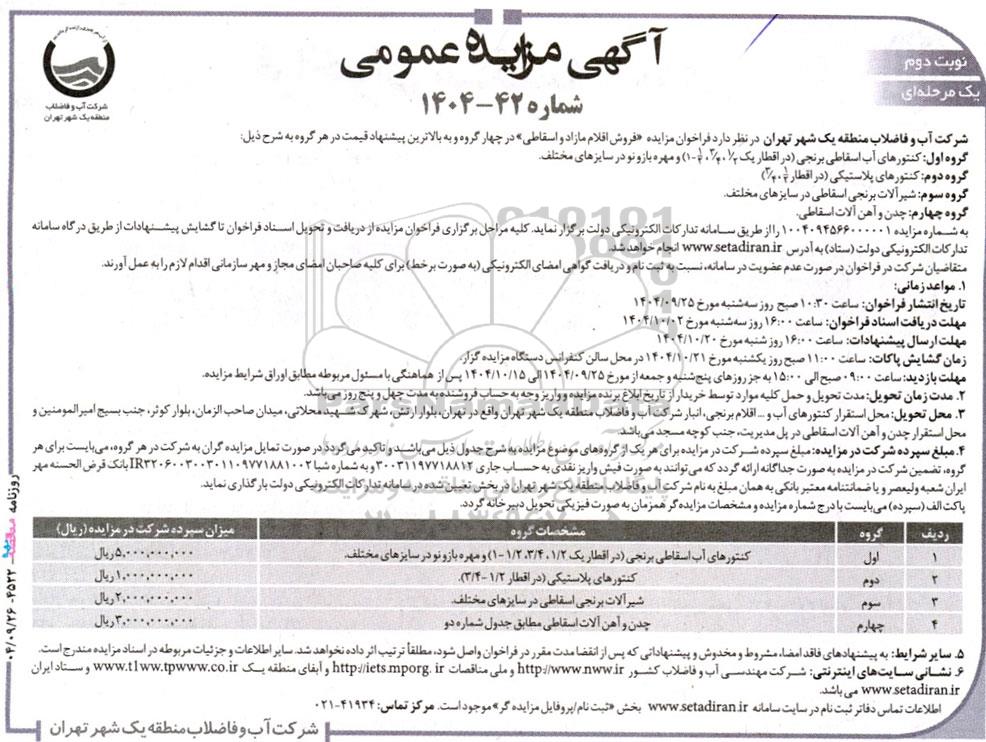 آگهی مزایده عمومی
شماره ۴۲-۱۴۰۴
نوبت دوم
یک مرحله‌ای
شرکت آب و فاضلاب
منطقه یک شهر تهران
شرکت آب و فاضلاب منطقه یک شهر تهران در نظر دارد فراخوان مزایده «فروش اقلام مازاد و اسقاطی» در چهار گروه و به بالاترین پیشنهاد قیمت در هر گروه به شرح ذیل:
گروه اول: کنتورهای آب اسقاطی برنجی (در اقطار یک ۱/۲، ۳/۴، ۱/۲-۱) و مهره بازو نو در سایزهای مختلف.
گروه دوم: کنتورهای پلاستیکی (در اقطار ۱/۲، ۳/۴)
گروه سوم: شیرآلات برنجی اسقاطی در سایزهای مختلف.
گروه چهارم: چدن و آهن آلات اسقاطی.
به شماره مزایده ۱۰۰۴۰۹۴۵۶۶۰۰۰۰۰۱ را از طریق سامانه تدارکات الکترونیکی دولت برگزار نماید. کلیه مراحل برگزاری فراخوان مزایده از دریافت و تحویل اسناد فراخوان تا گشایش پیشنهادات از طریق درگاه سامانه
تدارکات الکترونیکی دولت (ستاد) به آدرس www.setadiran.ir انجام خواهد شد.
متقاضیان شرکت در فراخوان در صورت عدم عضویت در سامانه، نسبت به ثبت نام و دریافت گواهی امضای الکترونیکی (به صورت برخط) برای کلیه صاحبان امضای مجاز و مهر سازمانی اقدام لازم را به عمل آورند.
۱. مواعد زمانی:
تاریخ انتشار فراخوان: ساعت ۱۰:۳۰ صبح روز سه‌شنبه مورخ ۱۴۰۴/۰۹/۲۵
مهلت دریافت اسناد فراخوان: ساعت ۱۶:۰۰ روز سه‌شنبه مورخ ۱۴۰۴/۱۰/۰۲
مهلت ارسال پیشنهادات: ساعت ۱۶:۰۰ روز شنبه مورخ ۱۴۰۴/۱۰/۲۰
زمان گشایش پاکات: ساعت ۱۱:۰۰ صبح روز یکشنبه مورخ ۱۴۰۴/۱۰/۲۱ در محل سالن کنفرانس دستگاه مزایده گزار.
مهلت بازدید: ساعت ۰۹:۰۰ صبح الی ۱۵:۰۰ به جز روزهای پنج‌شنبه و جمعه از مورخ ۱۴۰۴/۰۹/۲۵ الی ۱۴۰۴/۱۰/۱۵ پس از هماهنگی با مسئول مربوطه مطابق اوراق شرایط مزایده.
۲. مدت زمان تحویل: مدت تحویل و حمل کلیه موارد توسط خریدار از تاریخ ابلاغ برنده مزایده و واریز وجه به حساب فروشنده به مدت چهل و پنج روز می‌باشد.
۳. محل تحویل: محل استقرار کنتورهای آب و ... اقلام برنجی، انبار شرکت آب و فاضلاب منطقه یک شهر تهران واقع در تهران، بلوار ارتش، شهرک شهید محلاتی، میدان صاحب الزمان، بلوار کوثر، جنب بسیج امیرالمومنین و
محل استقرار چدن و آهن آلات اسقاطی در پل مدیریت، جنب کوچه مسجد می‌باشد.
۴. مبلغ سپرده شرکت در مزایده: مبلغ سپرده شرکت در مزایده برای هر یک از گروه‌های موضوع مزایده به شرح جدول ذیل می‌باشد و تاکید می‌گردد در صورت تمایل مزایده گران به شرکت در هر گروه، می‌بایست برای هر
گروه، تضمین شرکت در مزایده به صورت جداگانه ارائه گردد که می‌توانند به صورت فیش واریز نقدی به حساب جاری ۳۰۰۳۱۱۹۷۷۱۸۸۱۲ و به شماره شبا IR۳۲۰۶۰۰۳۰۰۳۰۱۱۰۹۷۷۱۸۸۱۰۰۲ بانک قرض الحسنه مهر
ایران شعبه ولیعصر و یا ضمانتنامه معتبر بانکی به همان مبلغ به نام شرکت آب و فاضلاب منطقه یک شهر تهران در بخش تعیین شده در سامانه تدارکات الکترونیکی دولت بارگذاری نماید.
پاکت الف (سپرده) می‌بایست با درج شماره مزایده و مشخصات مزایده گر همزمان به صورت فیزیکی تحویل دبیرخانه گردد.
ردیف گروه مشخصات گروه میزان سپرده شرکت در مزایده (ریال)
۱ اول کنتورهای آب اسقاطی برنجی (در اقطار یک ۱/۲، ۳/۴، ۱/۲-۱) و مهره بازو نو در سایزهای مختلف. ۵,۰۰۰,۰۰۰,۰۰۰ ریال
۲ دوم کنتورهای پلاستیکی (در اقطار ۱/۲-۳/۴). ۱,۰۰۰,۰۰۰,۰۰۰ ریال
۳ سوم شیرآلات برنجی اسقاطی در سایزهای مختلف. ۲,۰۰۰,۰۰۰,۰۰۰ ریال
۴ چهارم چدن و آهن آلات اسقاطی مطابق جدول شماره دو ۳,۰۰۰,۰۰۰,۰۰۰ ریال
۵. سایر شرایط: به پیشنهادهای فاقد امضا، مشروط و مخدوش و پیشنهاداتی که پس از انقضا مدت مقرر در فراخوان واصل شود، مطلقاً ترتیب اثر داده نخواهد شد. سایر اطلاعات و جزئیات مربوطه در اسناد مزایده مندرج است.
۶. نشانی سایت‌های اینترنتی: شرکت مهندسی آب و فاضلاب کشور http://www.nww.ir و ملی مناقصات http://iets.mporg.ir و آبفای منطقه یک www.t1ww.tpwww.co.ir و ستاد ایران
www.setadiran.ir می باشد.
اطلاعات تماس دفاتر ثبت نام در سایت سامانه www.setadiran.ir بخش «ثبت نام/پروفایل مزایده گر» موجود است. مرکز تماس: ۴۱۹۳۴-۰۲۱
شرکت آب و فاضلاب منطقه یک شهر تهران
روزنامه مناقصه مزایده - ۴۵۲۲ - ۰۴/۰۹/۲۶